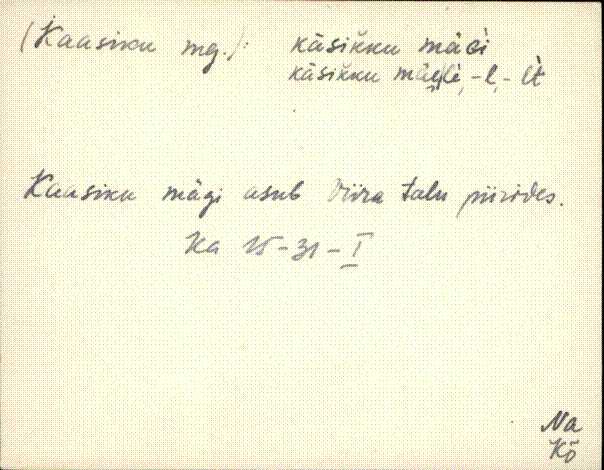 (Kaasiku mg.): käsikku mäGi
käsikku mäele, -l, -lt
Kaasiku mägi asub Viira talu piirides.
Ka 15-31-I
Na
Kõ